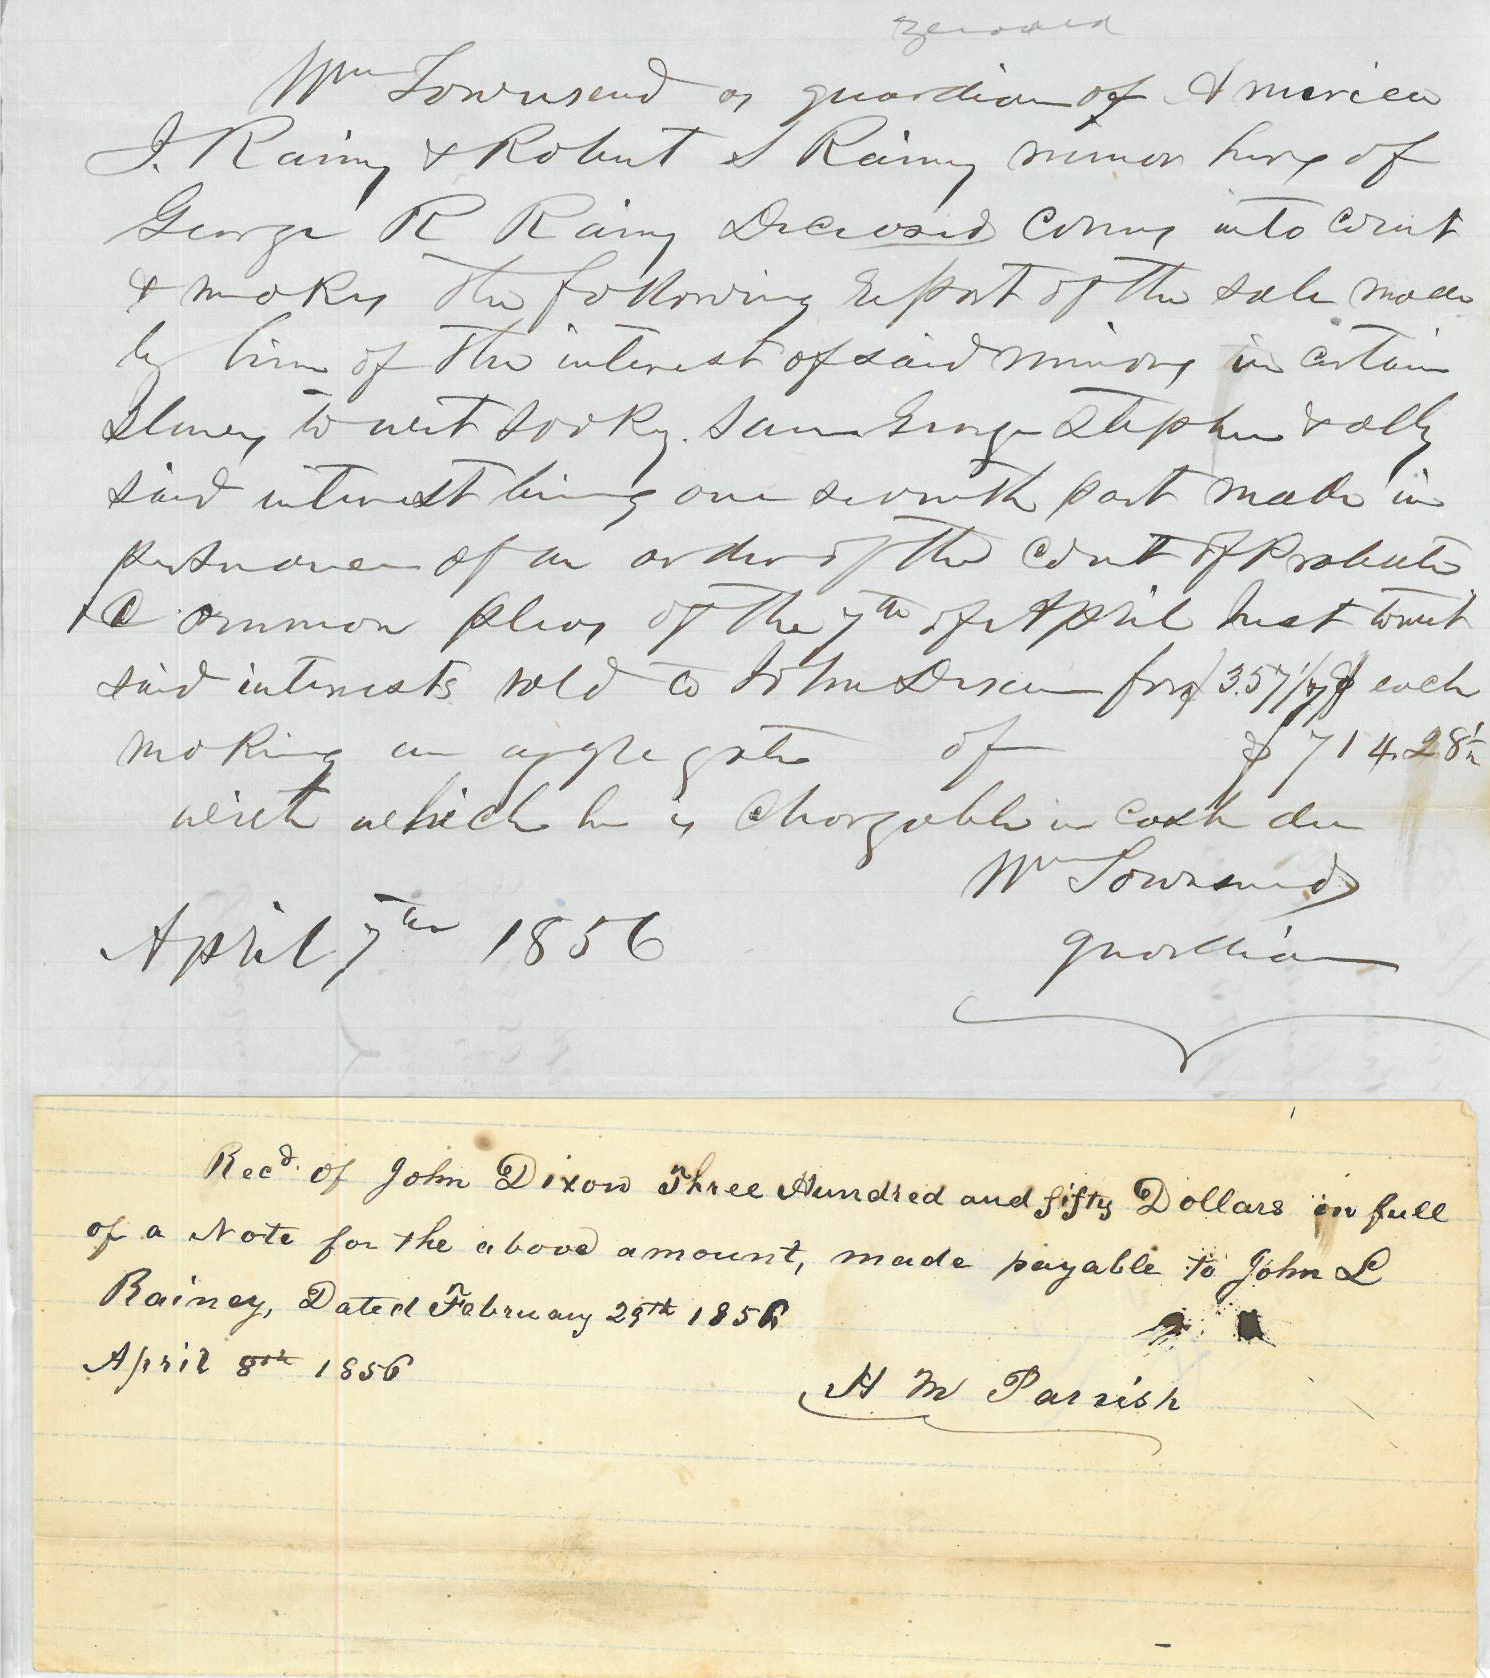 Wm Townsend as guardian of America
J. Rainy & Robert S Rainy minor heirs of
George R Rainy Deceased comes into court
& makes the following report of the sale made
by him of the interest of said minors in certain
slaves to wit Sooky. Sam George Stephen & ally
said interest being one seventh part made in
pursuance of an order of the court of Probate
& Common pleas of the 7th of April Inst towit
said interests sold to John Dixon for $357 1/7 each
making an aggregate of $714.28½
with which he is chargable in cash due
Wm Townsend
April 7th 1856
guardian
Recd. of John Dixon Three Hundred and fifty Dollars in full
of a Note for the above amount, made payable to John L
Rainey, Dated February 29th 1856
April 8th 1856
H M Parrish